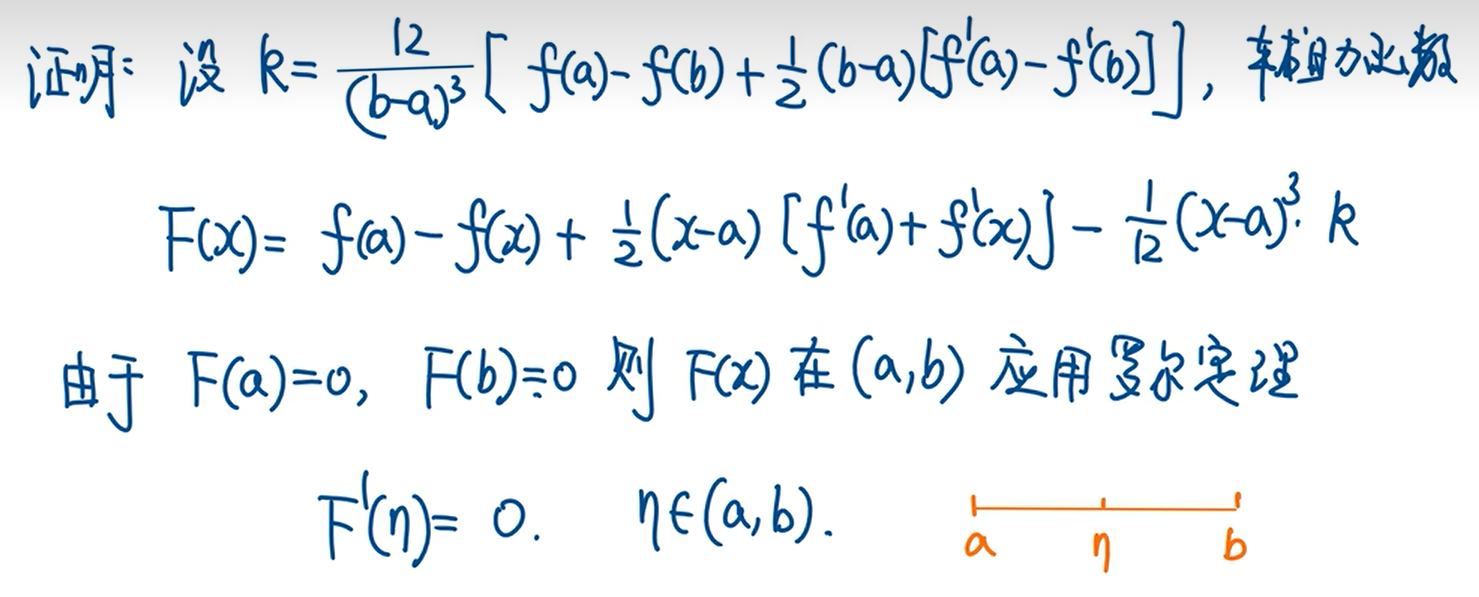 证明: 设 k= 12/(b-a)³ [ f(a)-f(b)+½(b-a)[f'(a)-f'(b)] ], 车甫自力函数
F(x)= f(a)-f(x)+ ½(x-a) [f'(a)+f'(x)] - 1/12 (x-a)³· k
由于 F(a)=0, F(b)=0 则 F(x) 在 (a,b) 应用罗尔定理
F'(η)= 0. η∈(a,b).
a η b